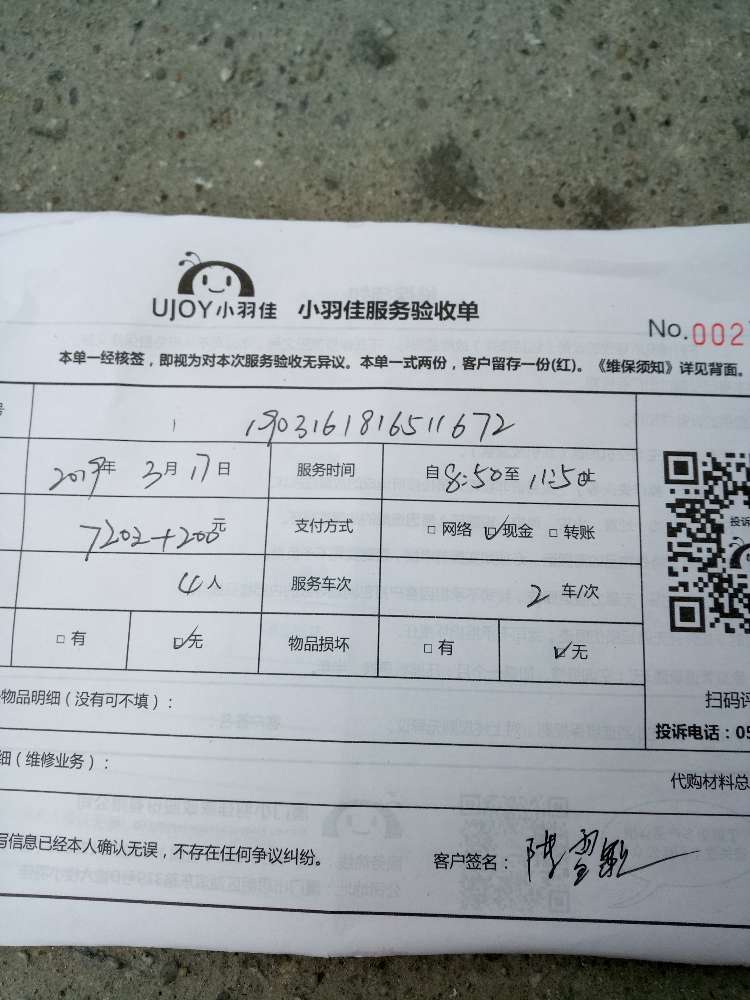 UJOY小羽佳 小羽佳服务验收单
No.002
本单一经核签，即视为对本次服务验收无异议。本单一式两份，客户留存一份(红)。《维保须知》详见背面。
号 1903161816511672
2019年 3月 17日 服务时间 自8:50至 11:50止
720元+200元 支付方式 □ 网络 ☑ 现金 □ 转账
4人 服务车次 2 车/次
□ 有 ☑ 无 物品损坏 □ 有 ☑ 无
物品明细（没有可不填）：
扫码评
投诉电话：05
细（维修业务）：
代购材料总
写信息已经本人确认无误，不存在任何争议纠纷。 客户签名：